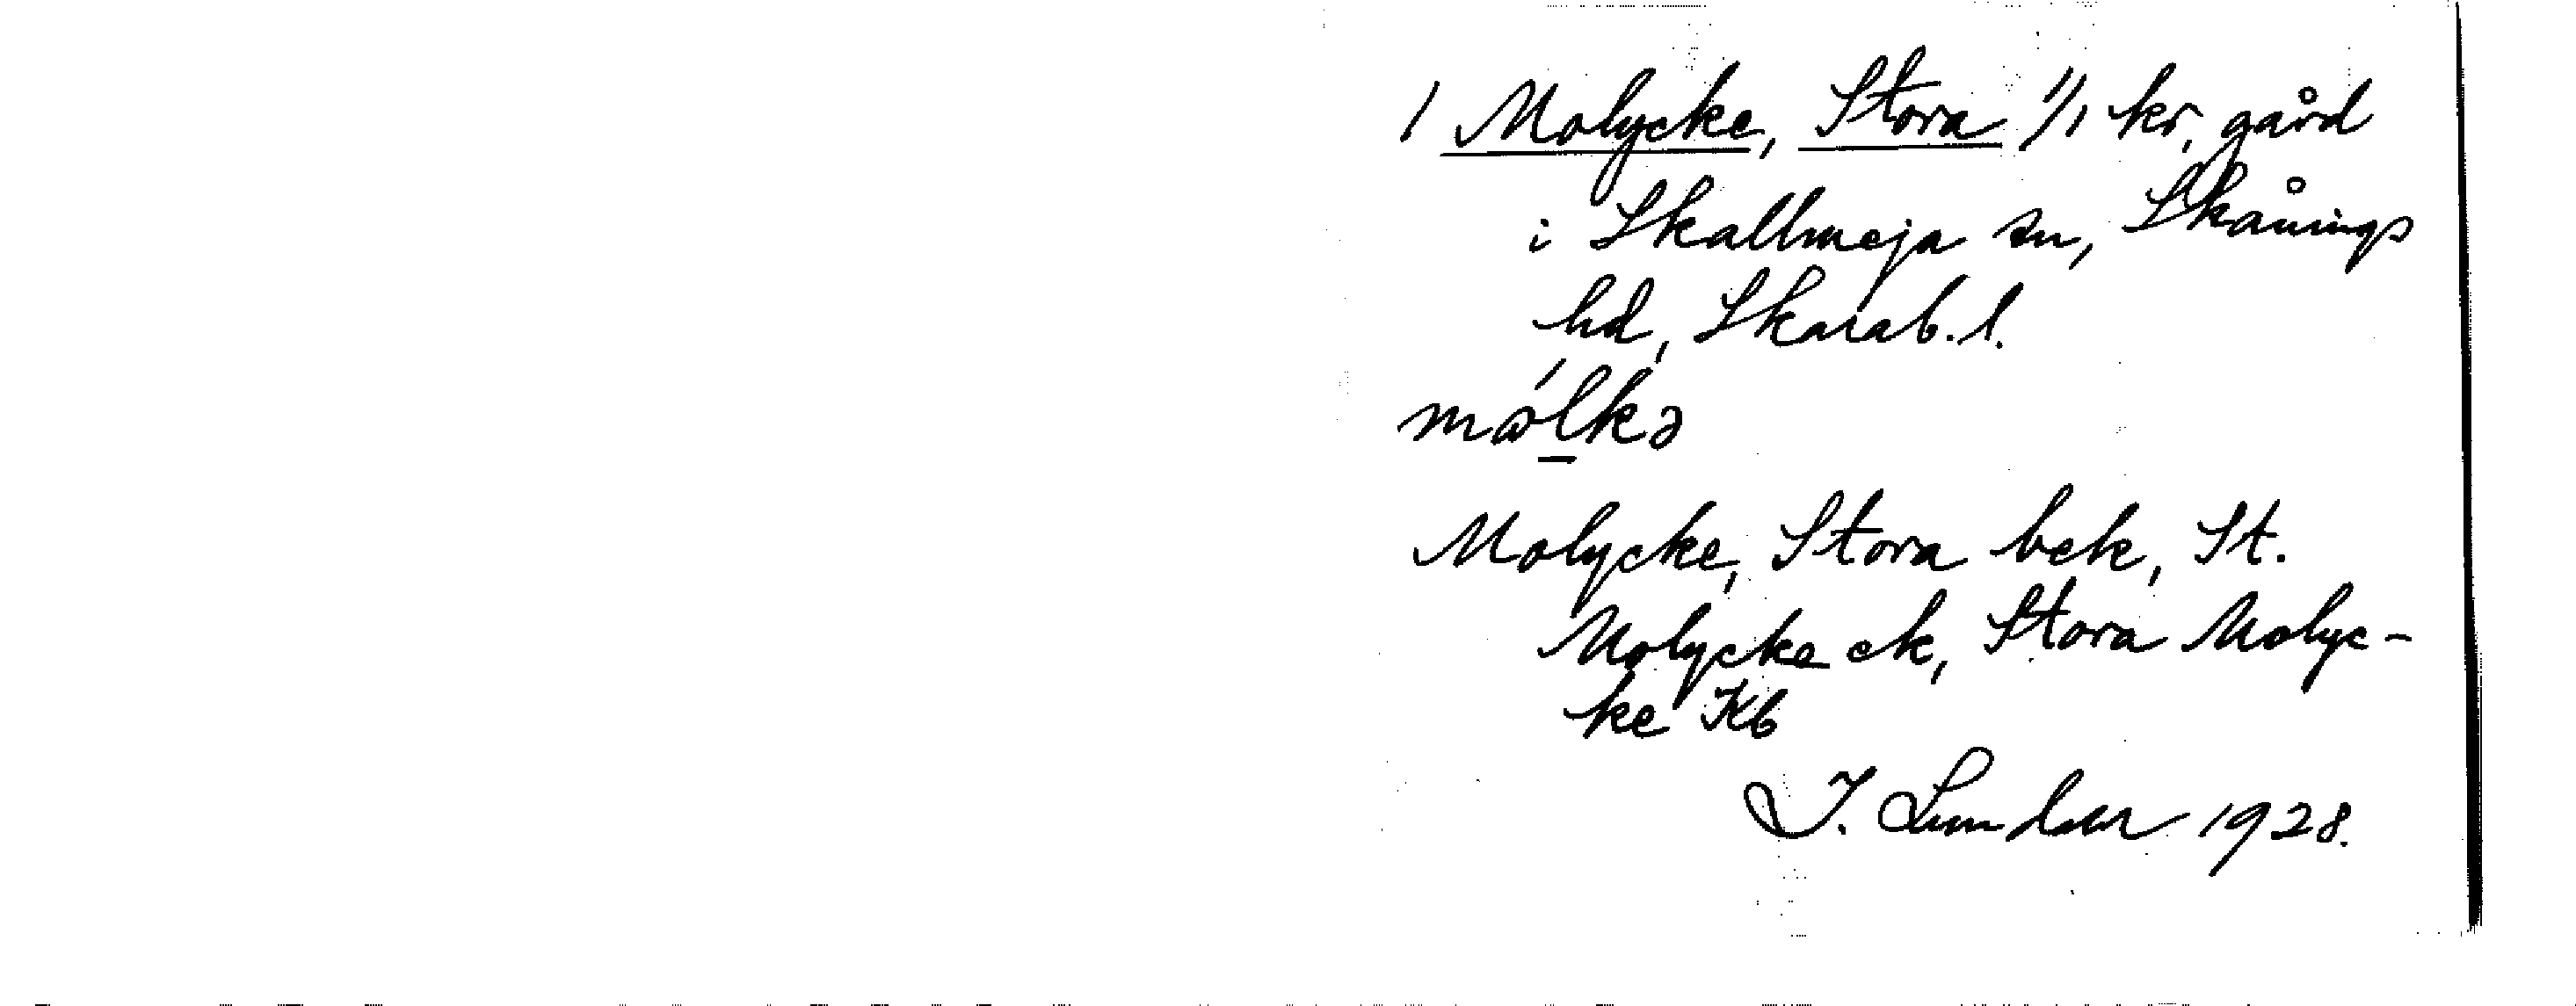 1 Molycke, Stora 1/1 kr. gård
i Skallmeja sn, Skånings
hd, Skarab. l.
mólkə
Molycke, Stora bek, St.
Molycke ek, Stora Molyc-
ke Kb
J. Lundahl 1928.